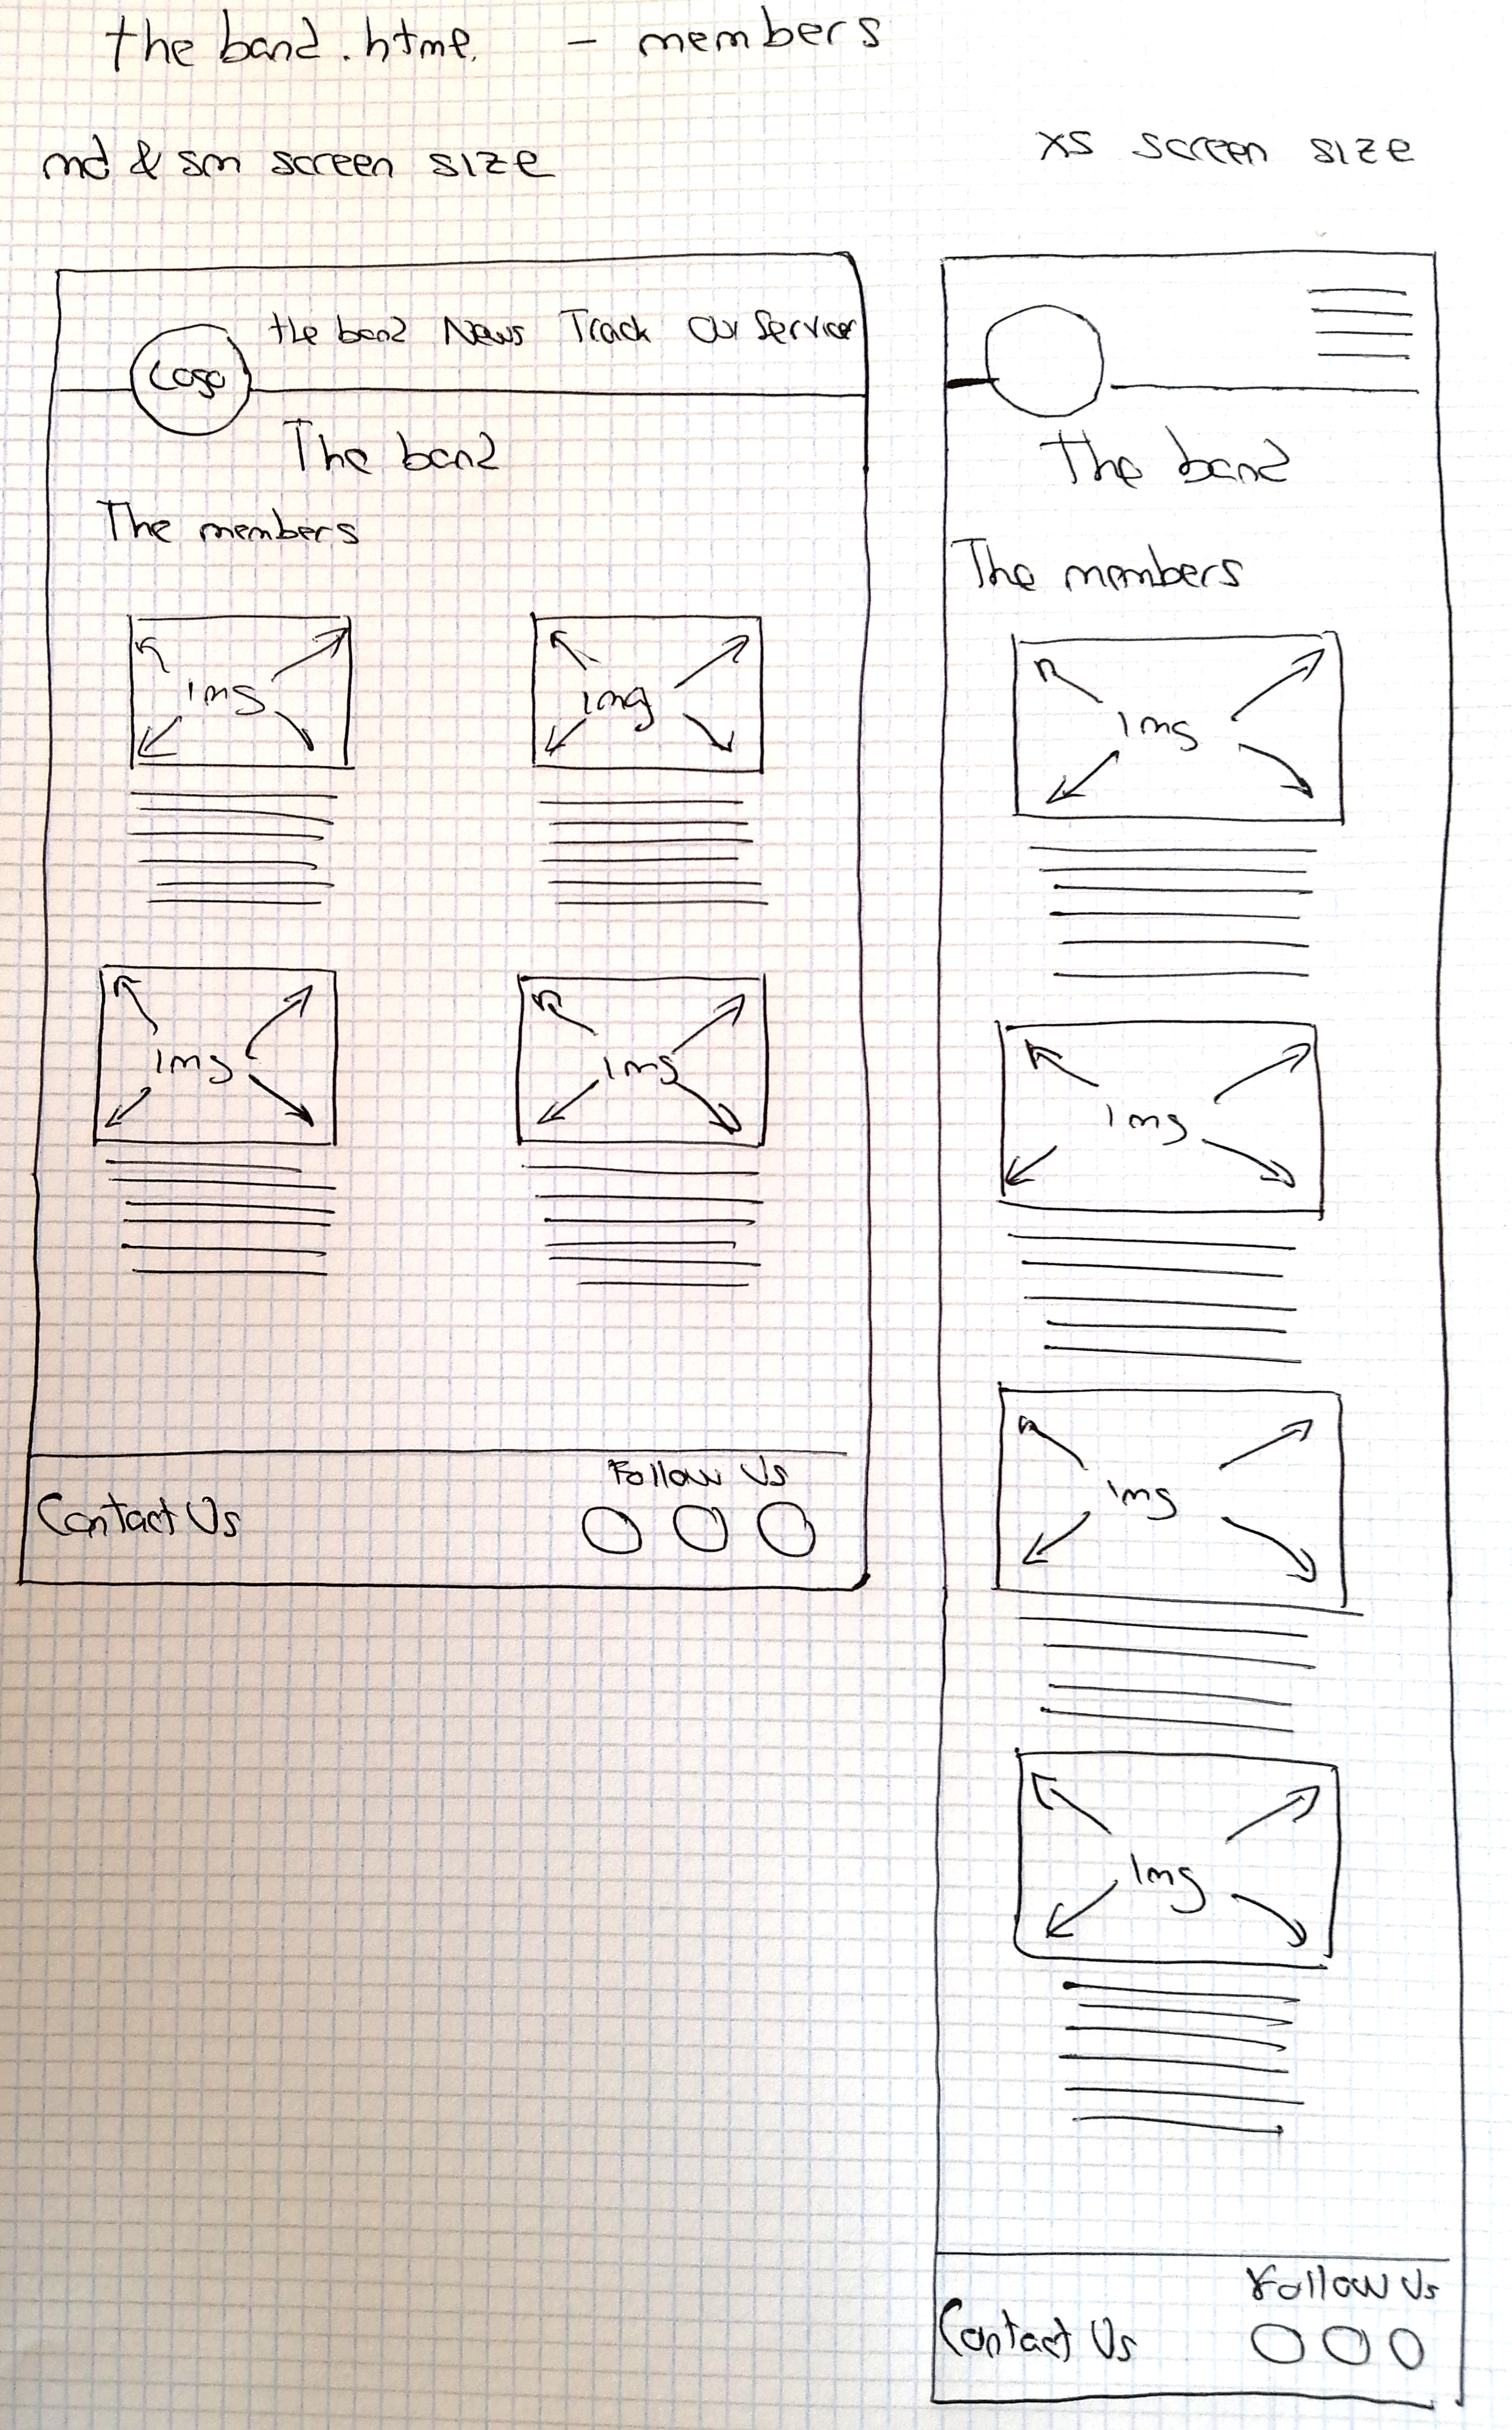 the band.html - members
md & sm screen size
xs screen size
Logo
the band News Track Our Services
The band
The members
img img
img img
Follow Us
Contact Us
The band
The members
img
img
img
img
Follow Us
Contact Us